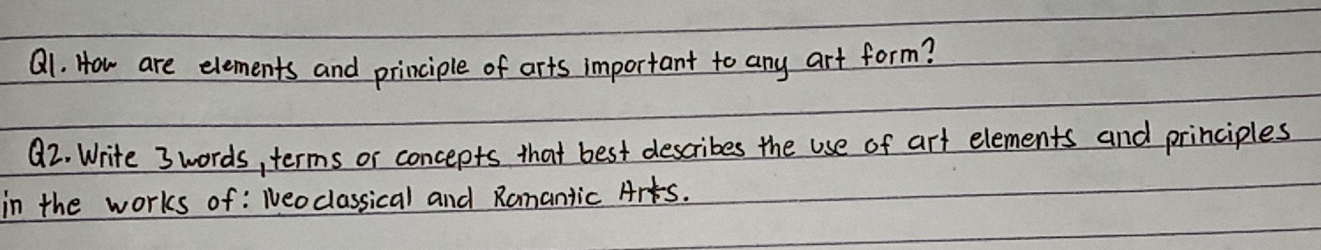 Q1. How are elements and principle of arts important to any art form?
Q2. Write 3 words, terms or concepts that best describes the use of art elements and principles
in the works of: Neoclassical and Romantic Arts.